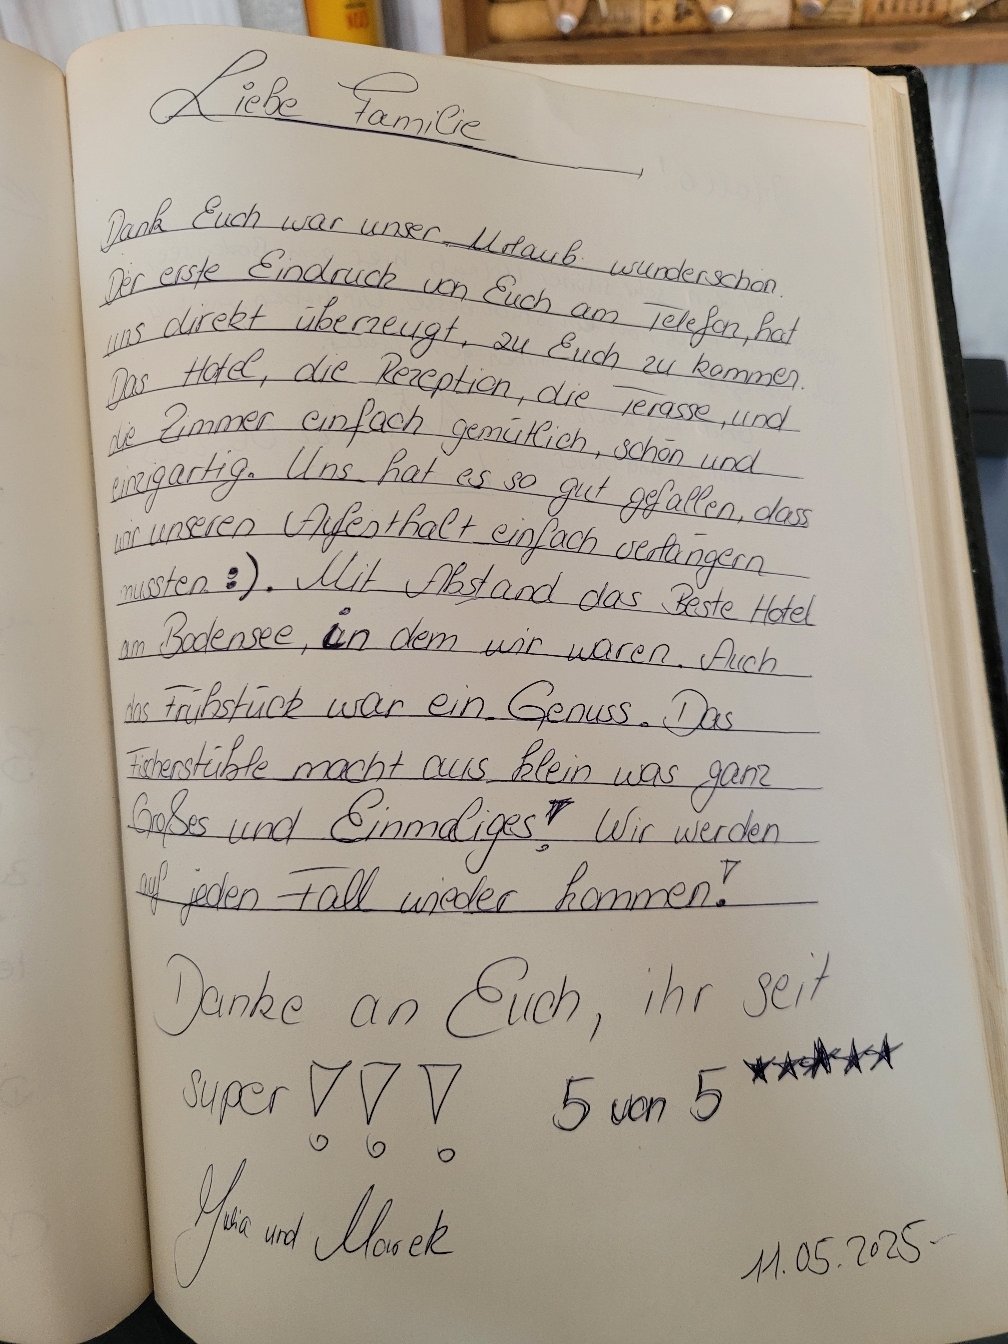 Liebe Familie
Dank Euch war unser Urlaub wunderschön.
Der erste Eindruck von Euch am Telefon, hat
uns direkt überzeugt, zu Euch zu kommen.
Das Hotel, die Rezeption, die Terasse, und
die Zimmer einfach gemütlich, schön und
einzigartig. Uns hat es so gut gefallen, dass
wir unseren Aufenthalt einfach verlängern
mussten :). Mit Abstand das Beste Hotel
am Bodensee, in dem wir waren. Auch
das Frühstück war ein Genuss. Das
Fischerstüble macht aus klein was ganz
Großes und Einmaliges! Wir werden
auf jeden Fall wieder kommen!
Danke an Euch, ihr seit
super !!! 5 von 5 ★★★★★
und Marek
11.05.2025